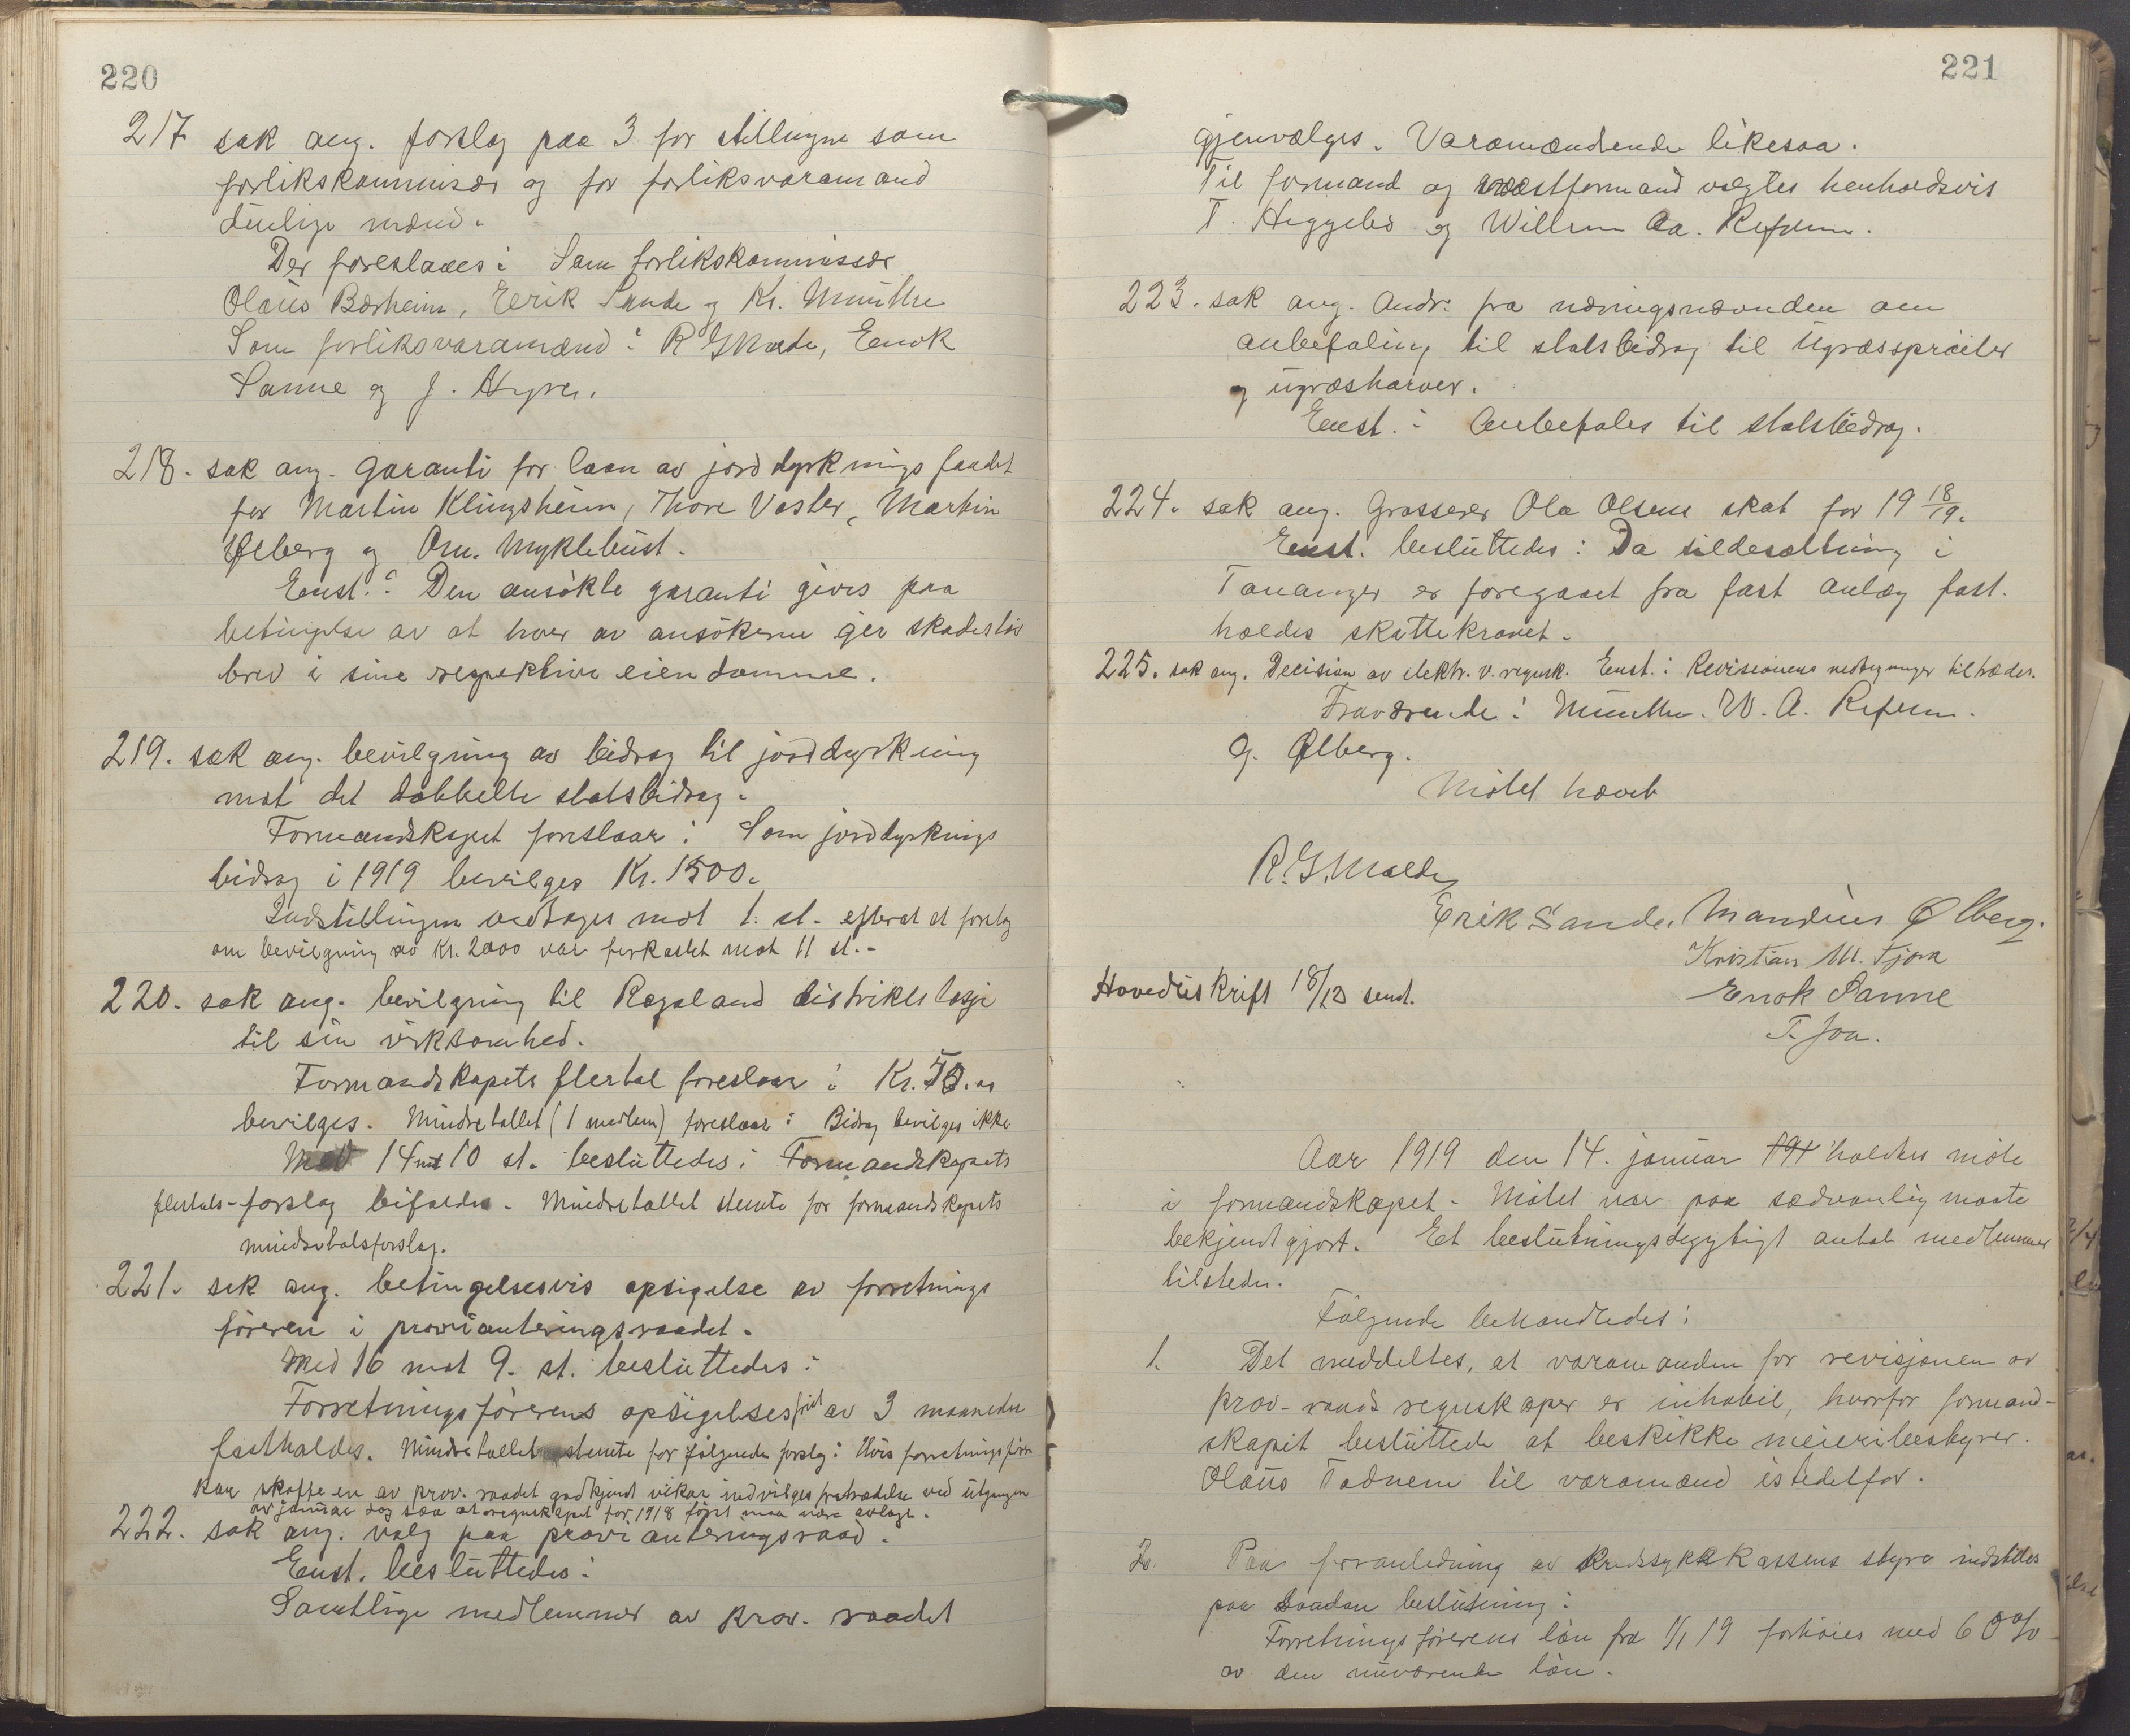 220
217 sak ang. forslag paa 3 for stillingen som
forlikskommisær og for forliksvaramand
duelige mænd.
Der foreslaaes: Som forlikskommissær
Olaus Børheim, Eerik Sande og Kr. Munthe
Som forliksvaramænd: R G Malde, Enok
Sanne og J.
218. sak ang. garanti for laan av jorddyrkningsfondet
for Martin Klingsheim, Thore Vaster, Martin
Ølberg og Om. Myklebust.
Enst.: Den ansökte garanti gives paa
betingelse av at hver av ansökerne ger skadeslös
brev i sine respektive eiendomme.
219. sak ang. bevilgning av bidrag til jorddyrkning
mot det dobbelte statsbidrag.
Formandskapet foreslaar: Som jorddyrknings
bidrag i 1919 bevilges Kr. 1500.
Indstillingen vedtages mot 1. st. efterat et forslag
om bevilgning av Kr. 2000 var forkastet mot 11 st.-
220. sak ang. bevilgning til Rogaland distriktslosje
til sin virksomhed.
Formandskapets flertal foreslaar: Kr. 50.00
bevilges. Mindretallet (1 medlem) foreslaar: Bidrag bevilges ikke
Med 14 mot 10 st. besluttedes: Formandskapets
flertals-forslag bifaldes. Mindretallet stemte for formandskapets
mindretalsforslag.
221. sak ang. betingelsesvis opsigelse av forretnings
föreren i provianteringsraadet.
Med 16 mot 9. st. besluttedes:
Forretningsförerens opsigelsesfrist av 3 maaneder
fastholdes. Mindretallet stemte for fölgende forslag: Hvis forretningsförer
kan skaffe en av prov. raadet godkjent vikar indvilges fratrædelse ved utgangen
av januar dog saa at regnskapet for 1918 först maa være avlagt.
222. sak ang. valg paa provianteringsraad.
Enst. besluttedes:
Samtlige medlemmer av prov. raadet
221
gjenvælges. Varamændende likesaa.
Til formand og næstformand valgtes henholdsvis
T. Heggebö og Willum Aa. Refsum.
223. sak ang. Andr. fra næringsnævnden om
anbefaling til statsbidrag til Ugræssprøiter
og ugræsharver.
Enst.: Anbefales til statsbidrag.
224. sak ang. Grosserer Ola Olsens skat for 19 18/19.
Enst. besluttedes: Da sildesaltning i
Tananger er foregaaet fra fast anlæg fast-
holdes skattekravet.
225. sak ang. Decision av elektr. v. regnsk. Enst.: Revisionens nedtegninger tiltrædes.
Fraværende: Munthe. W. A. Refsum.
G. Ølberg.
Mötet hævet
R. G. Malde
Erik Sande. Mandius Ølberg.
Kristian M. Tjora
Hovedutskrift 18/12 sendt.
Enok Sanne
T. Joa.
Aar 1919 den 14. januar 191 holdtes möte
i formandskapet. Mötet var paa sædvanlig maate
bekjendtgjort. Et beslutningsdygtigt antal medlemmer
tilstede.
Fölgende behandledes:
1. Det meddeltes, at varamanden for revisjonen av
prov-raads regnskaper er inhabil, hvorfor formand-
skapet besluttede at beskikke meieribestyrer
Olaus Tadnem til varamand istedetfor.
2. Paa foranledning av Kredssykekassens styre indstilles
paa saadan beslutning:
Forretningsförerens lön fra 1/1 19 forhöies med 60%
av den nuværende lön.